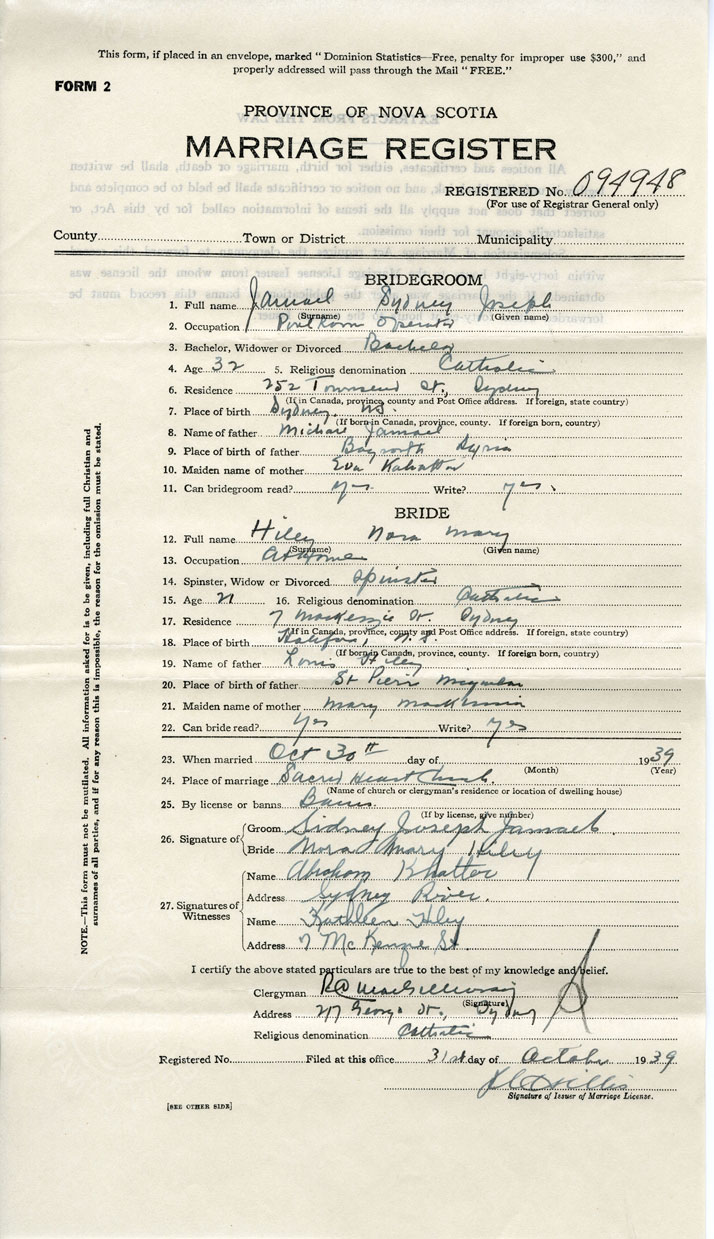 This form, if placed in an envelope, marked "Dominion Statistics—Free, penalty for improper use $300," and
properly addressed will pass through the Mail "FREE."
FORM 2
PROVINCE OF NOVA SCOTIA
MARRIAGE REGISTER
REGISTERED No. 094948
(For use of Registrar General only)
County Town or District Municipality
BRIDEGROOM
1. Full name Jamael Sydney Joseph
(Surname) (Given name)
2. Occupation Pool Room Operator
3. Bachelor, Widower or Divorced Bachelor
4. Age 32 5. Religious denomination Catholic
6. Residence 252 Townsend St., Sydney
(If in Canada, province, county and Post Office address. If foreign, state country)
7. Place of birth Sydney, NS.
(If born in Canada, province, county. If foreign born, country)
8. Name of father Jamael
9. Place of birth of father Syria
10. Maiden name of mother Eva
11. Can bridegroom read? yes Write? yes.
BRIDE
12. Full name Hiley Nora Mary
(Surname) (Given name)
13. Occupation At Home
14. Spinster, Widow or Divorced Spinster
15. Age 21 16. Religious denomination Catholic
17. Residence 7 MacKenzie St. Sydney
(If in Canada, province, county and Post Office address. If foreign, state country)
18. Place of birth Halifax, N.S.
(If born in Canada, province, county. If foreign born, country)
19. Name of father Louis Hiley
20. Place of birth of father St Pierre
21. Maiden name of mother Mary
22. Can bride read? Yes Write? yes
23. When married Oct 30th day of 1939
(Month) (Year)
24. Place of marriage Sacred Heart Church.
(Name of church or clergyman's residence or location of dwelling house)
25. By license or banns Banns.
(If by license, give number)
26. Signature of Groom Sidney Joseph Jamael.
Bride Nora Mary Hiley
27. Signatures of Witnesses
Name Abraham Khatter
Address Sydney River.
Name Kathleen Hiley
Address 7 McKenzie St.
I certify the above stated particulars are true to the best of my knowledge and belief.
Clergyman
(Signature)
Address George St., Sydney
Religious denomination Catholic
Registered No. Filed at this office 31st day of October 1939
Signature of Issuer of Marriage License.
[SEE OTHER SIDE]
NOTE.—This form must not be mutilated. All information asked for is to be given, including full Christian and
surnames of all parties, and if for any reason this is impossible, the reason for the omission must be stated.